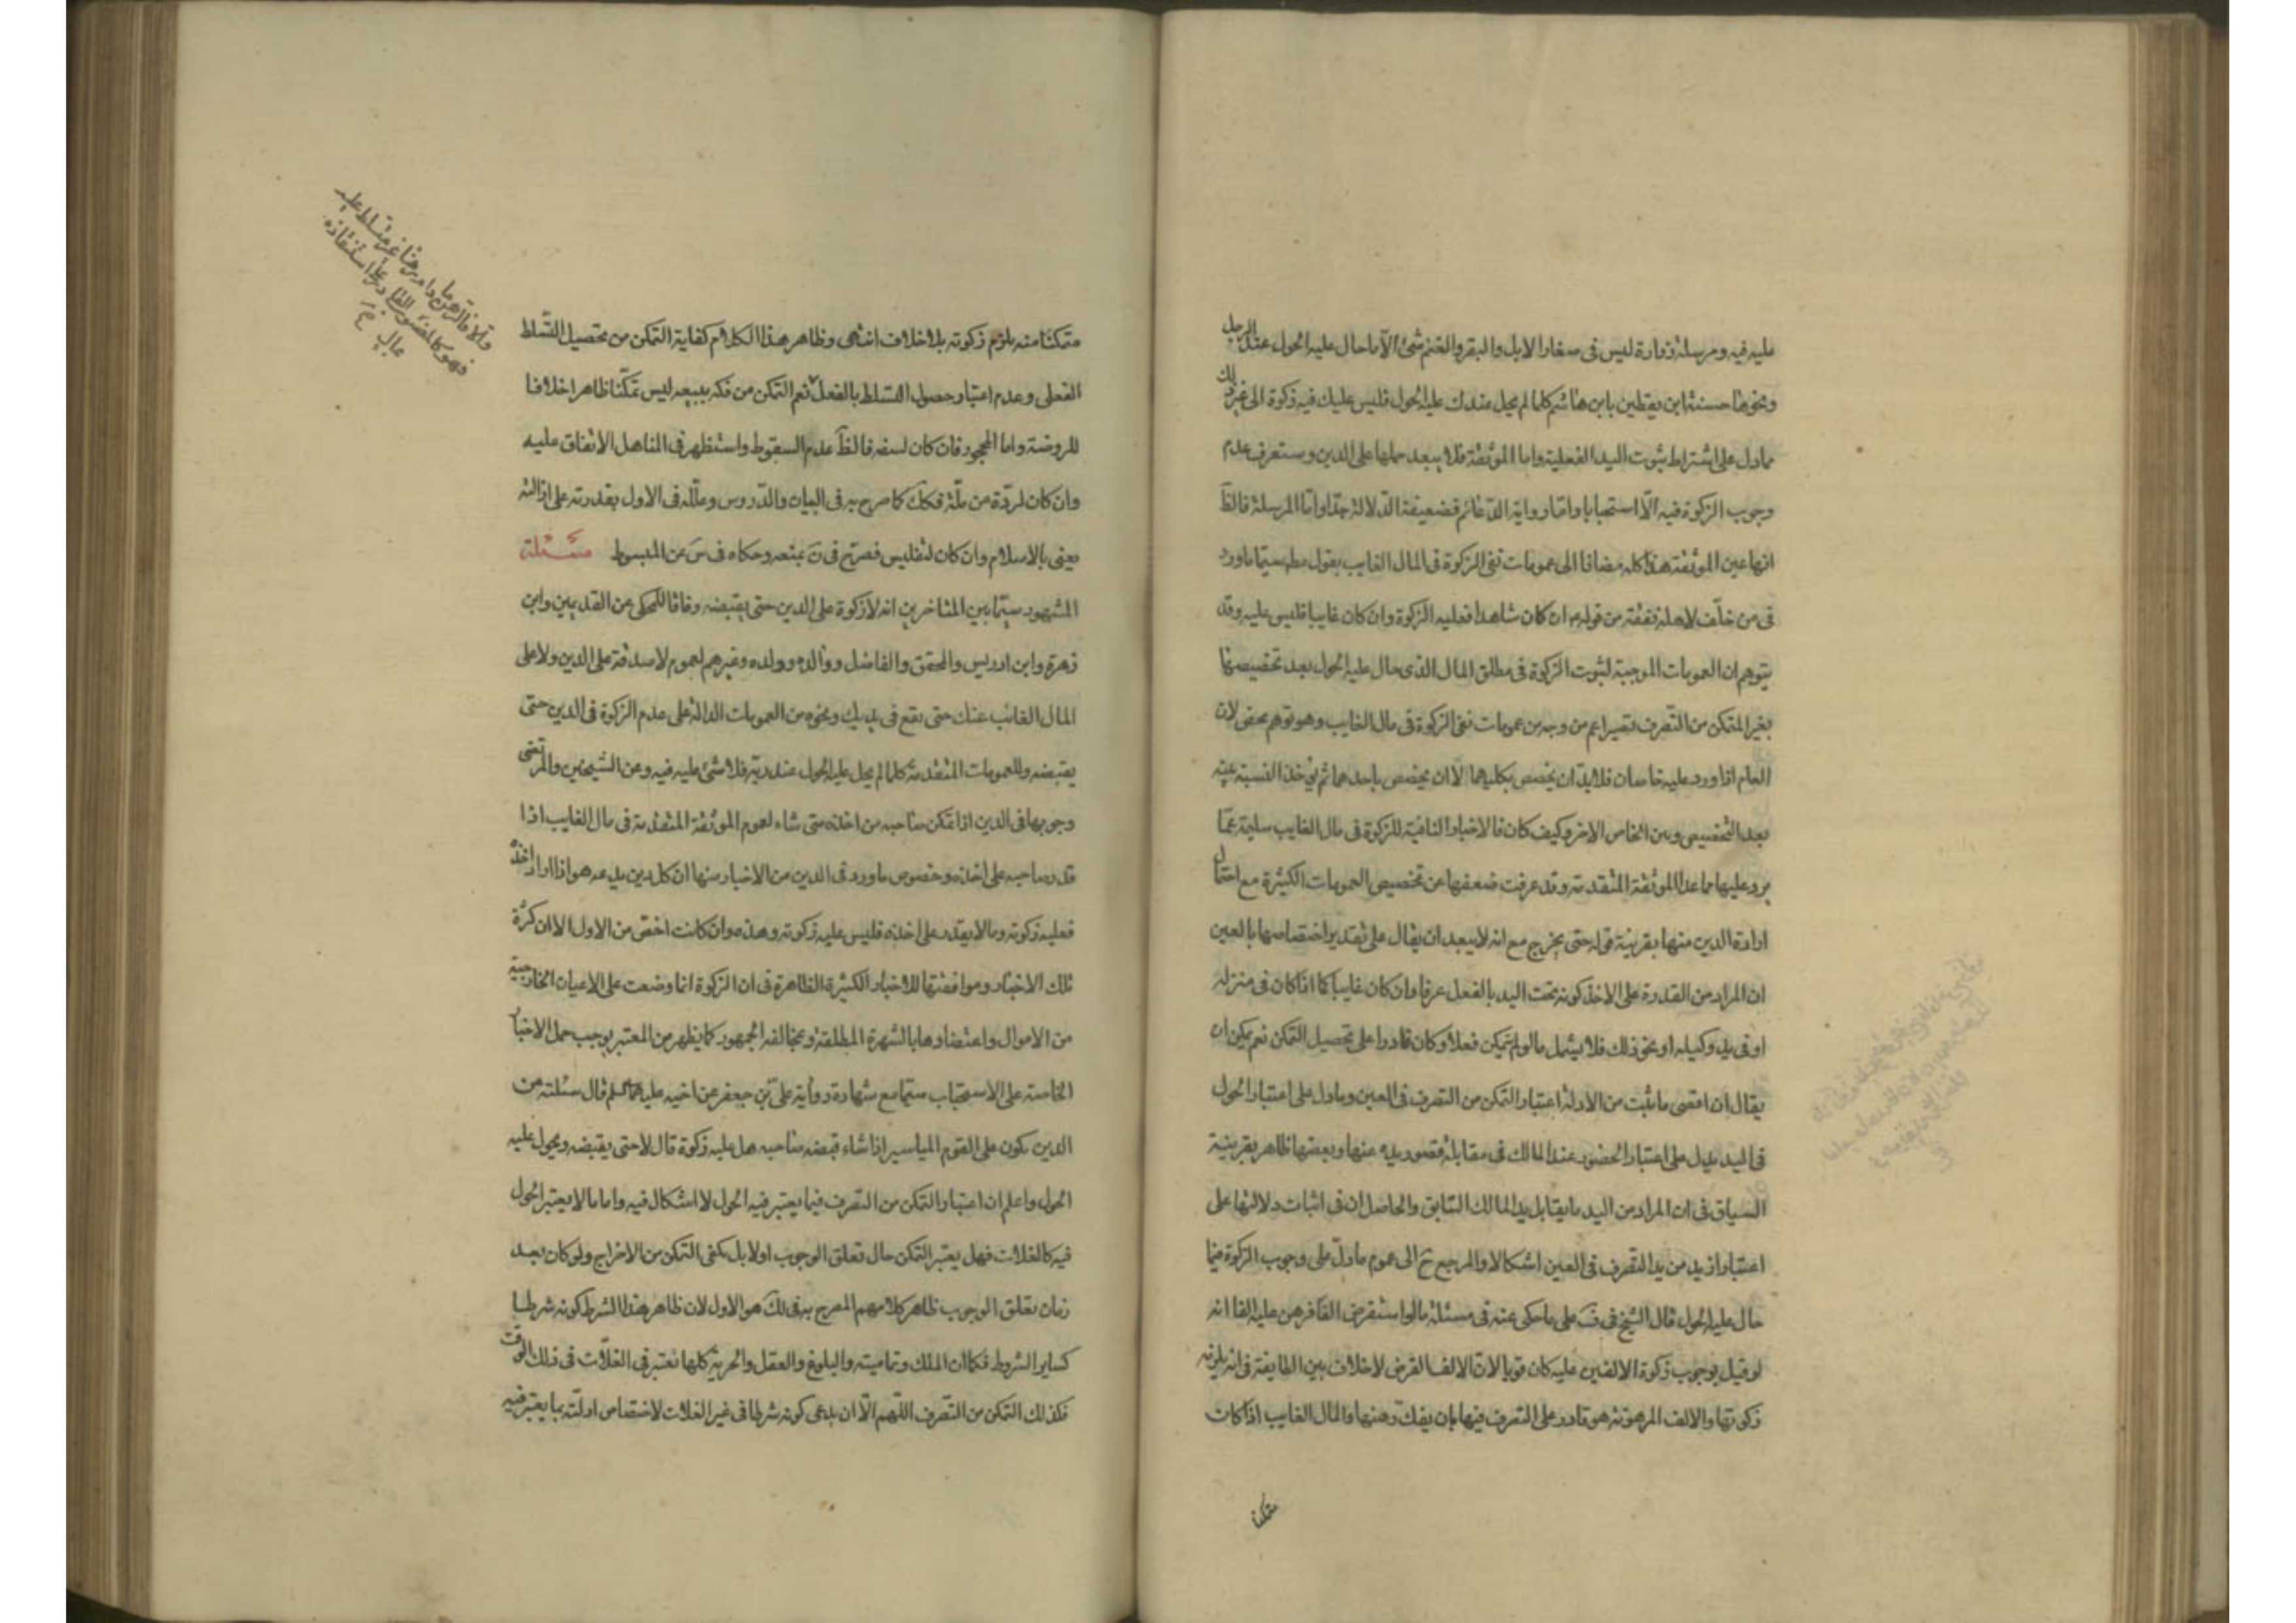 عليه فيه ومرسلة زرارة ليس فى صغار الابل والبقر والغنم شئ الّا ما حال عليه الحول عند الرجل
ونحوها حسنة ابن يقطين يا بن هاشم كلما لم يحل عندك عليه الحول فليس عليك فيه زكوة الى غير ذلك
مما دل على اشتراط ثبوت اليد الفعلية واما الموثقة فلا يبعد حملها على الدين وستعرف عدم
وجوب الزكوة فيه الّا استحبابا وامّا رواية الدّعائم فضعيفة الدّلالة جدّا وامّا المرسلة فالظّ
انها عين الموثقة هذا كله مضافا الى عمومات نفى الزكوة فى المال الغايب بقول مط سيّما ما ورد
فى من خلّف لاهله نفقة من قوله ع ان كان شاهدا فعليه الزكوة وان كان غايبا فليس عليه وقد
يتوهم ان العمومات الموجبة لثبوت الزكوة فى مطلق المال الذى حال عليه الحول بعد تخصيصها
بغير المتمكن من التّصرف تصير اعم من وجه من عمومات نفى الزكوة فى مال الغايب وهو توهم محض لان
العام اذا ورد عليه خاصان فلا بدّ ان يخصص بكليهما لا ان يخصص باحدهما ثم يؤخذ النسبة بينه
بعد التخصيص وبين الخاص الاخر وكيف كان فالاخبار النافية للزكوة فى مال الغايب سليمة عمّا
يرد عليها مما عدا الموثقة المتقدمة وقد عرفت ضعفها عن تخصيص العمومات الكثيرة مع احتمال
ارادة الدين منها بقرينة قوله حتى يخرج مع انه لا يبعد ان يقال على تقدير اختصاصها بالعين
ان المراد من القدرة على الاخذ كونه تحت اليد بالفعل عرفا وان كان غايبا كما اذا كان فى منزله
او فى يد وكيله او نحو ذلك فلا يشمل ما لو لم يتمكن فعلا وكان قادرا على تحصيل التمكن نعم يمكن ان
يقال ان اقصى ما ثبت من الادلة اعتبار التمكن من التصرف فى العين وما دل على اعتبار الحول
فى اليد يدل على اعتبار الحضور عند المالك فى مقابلة قصور يده عنها وبعضها ظاهر بقرينة
السياق فى ان المراد من اليد ما يقابل يد المالك السّابق والحاصل ان فى اثبات دلالتها على
اعتبار ازيد من يد التّصرف فى العين اشكالا والمرجع ح الى عموم ما دلّ على وجوب الزكوة فيما
حال عليه الحول قال الشيخ فى ف على ما حكى عنه فى مسئلة ما لو استقرض الفا فرهن عليه الفا انه
لو قيل بوجوب زكوة الالفين عليه كان قويا لانّ الالف القرض لا خلاف بين الطايفة فى انه يلزمه
زكوتها والالف المرهونة هو قادر على التصرف فيها بان يفكّ رهنها والمال الغايب اذا كان
متمكنا
متمكنا منه يلزم زكوته بلا خلاف انتهى وظاهر هذا الكلام كفاية التمكن من تحصيل التّسلط
الفعلى وعدم اعتبار حصول التسلط بالفعل نعم التمكن من فكه ببيعه ليس تمكّنا ظاهرا خلافا
للروضة واما المحجور فان كان لسفه فالظّ عدم السقوط واستظهر فى المناهل الاتفاق عليه
وان كان لردّة عن ملّة فكك كما صرح به فى البيان والدّروس وعلّله فى الاول بقدرته على ازالته
يعنى بالاسلام وان كان لتفليس فصرّح فى ن بمنعه وحكاه فى س عن المبسوط مسئلة
المشهور سيّما بين المتاخرين انه لا زكوة على الدين حتى يقبضه وفاقا للمحكى عن القديمين وابن
زهرة وابن ادريس والمحقق والفاضل ووالده وولده وغيرهم لعموم لا صدقة على الدين ولا على
المال الغائب عنك حتى يقع فى يديك ونحوه من العمومات الدالة على عدم الزكوة فى الدين حتى
يقبضه وللعمومات المتقدمة كلما لم يحل عليه الحول عند ربّه فلا شئ عليه فيه وعن الشيخين والمرتضى
وجوبها فى الدين اذا تمكن صاحبه من اخذه متى شاء لعموم الموثقة المتقدمة فى مال الغايب اذا
قدر صاحبه على اخذه وخصوص ما ورد فى الدين من الاخبار منها ان كل دين يدعه هو اذا اراد اخذه
فعليه زكوته وما لا يقدر على اخذه فليس عليه زكوته وهذه وان كانت اخصّ من الاول الا ان كثرة
تلك الاخبار وموافقتها للاخبار الكثيرة الظاهرة فى ان الزكوة انما وضعت على الاعيان الخارجية
من الاموال واعتضادها بالشهرة المطلقة ومخالفة الجمهور كما يظهر من المعتبر يوجب حمل الاخبار
الخاصة على الاستحباب سيّما مع شهادة رواية على بن جعفر عن اخيه عليهما السلم قال سئلته عن
الدين يكون على القوم المياسير اذا شاء قبضه صاحبه هل عليه زكوة قال لا حتى يقبضه ويحول عليه
الحول واعلم ان اعتبار التمكن من التصرف فيما يعتبر فيه الحول لا اشكال فيه واما ما لا يعتبر الحول
فيه كالغلات فهل يعتبر التمكن حال تعلق الوجوب اولا بل يكفى التمكن من الاخراج ولو كان بعد
زمان تعلق الوجوب ظاهر كلامهم المصرح به فى لك هو الاول لان ظاهر هذا الشرط كونه شرطا
كساير الشروط فكما ان الملك وتماميته والبلوغ والعقل والحرية كلها تعتبر فى الغلّات فى ذلك الوقت
فكذلك التمكن من التّصرف اللّهم الّا ان يدعى كونه شرطا فى غير الغلات لاختصاص ادلّته بما يعتبر فيه
والا فالرهن ما دام رهنا غير متسلط عليه
فهو كالمغصوب القادر على استنقاذه
بمال